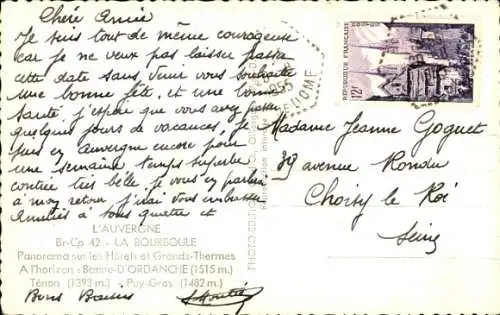 Chère Amie
Je suis tout de même courageuse
car je ne veux pas laisser passer
cette date sans venir vous souhaiter
une bonne fête, et une bonne
santé, j'espère que vous avez passé
quelques jours de vacances, je
suis en auvergne encore pour
une semaine temps superbe
contrée très belle, je vous en parlerai
à mon retour, j'irai vous embrasser
Amitiés à tous quatre et
L'AUVERGNE
Br-Cp 42 - LA BOURBOULE
Panorama sur les Hôtels et Grands-Thermes
A l'horizon : Banne-D'ORDANCHE (1515 m.)
Ténon (1393 m.) - Puy-Gros (1482 m.)
Bons Baisers
PHOTO
REPUBLIQUE FRANÇAISE
12F
DOME
Madame Jeanne Goguet
39 avenue Rondu
Choisy le Roi
Seine